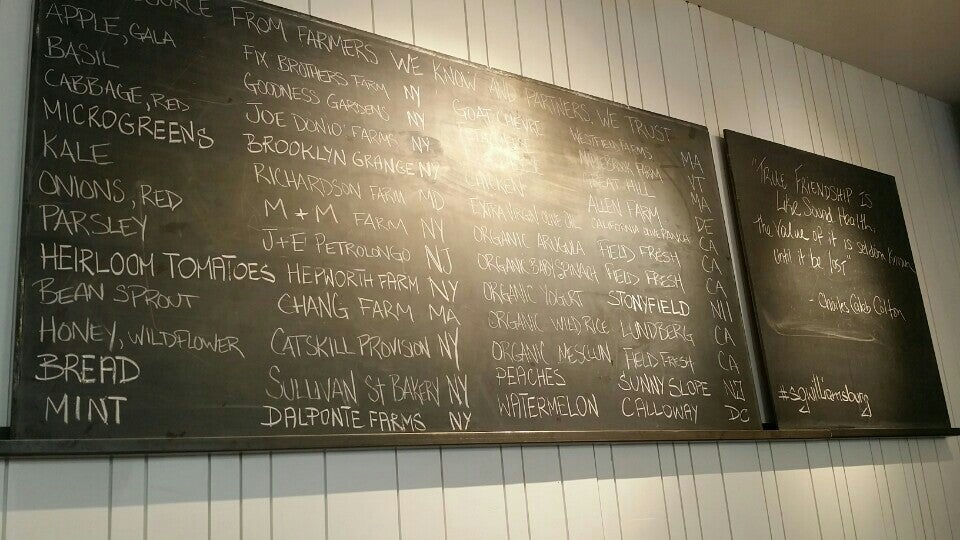 SOURCE FROM FARMERS WE KNOW AND PARTNERS WE TRUST
APPLE, GALA FIX BROTHERS FARM NY
BASIL GOODNESS GARDENS NY
CABBAGE, RED JOE DONIO FARMS NY
MICROGREENS BROOKLYN GRANGE NY
KALE RICHARDSON FARM MD
ONIONS, RED M+M FARM NY
PARSLEY J+E PETROLONGO NJ
HEIRLOOM TOMATOES HEPWORTH FARM NY
BEAN SPROUT CHANG FARM MA
HONEY, WILDFLOWER CATSKILL PROVISION NY
BREAD SULLIVAN ST BAKERY NY
MINT DALPONTE FARMS NY
GOAT CHEVRE WESTFIELD FARMS MA
FARM VT
HILL MA
CHICKEN ALLEN FARM DE
EXTRA VIRGIN OLIVE OIL CALIFORNIA OLIVE RANCH CA
ORGANIC ARUGULA FIELD FRESH CA
ORGANIC BABY SPINACH FIELD FRESH CA
ORGANIC YOGURT STONYFIELD NH
ORGANIC WILD RICE LUNDBERG CA
ORGANIC MESCLUN FIELD FRESH CA
PEACHES SUNNY SLOPE NJ
WATERMELON CALLOWAY DC
"TRUE FRIENDSHIP IS
Like Sound Health,
The value of it is seldom Known
until it be lost"
- Charles Caleb Colton
#sgwilliamsburg